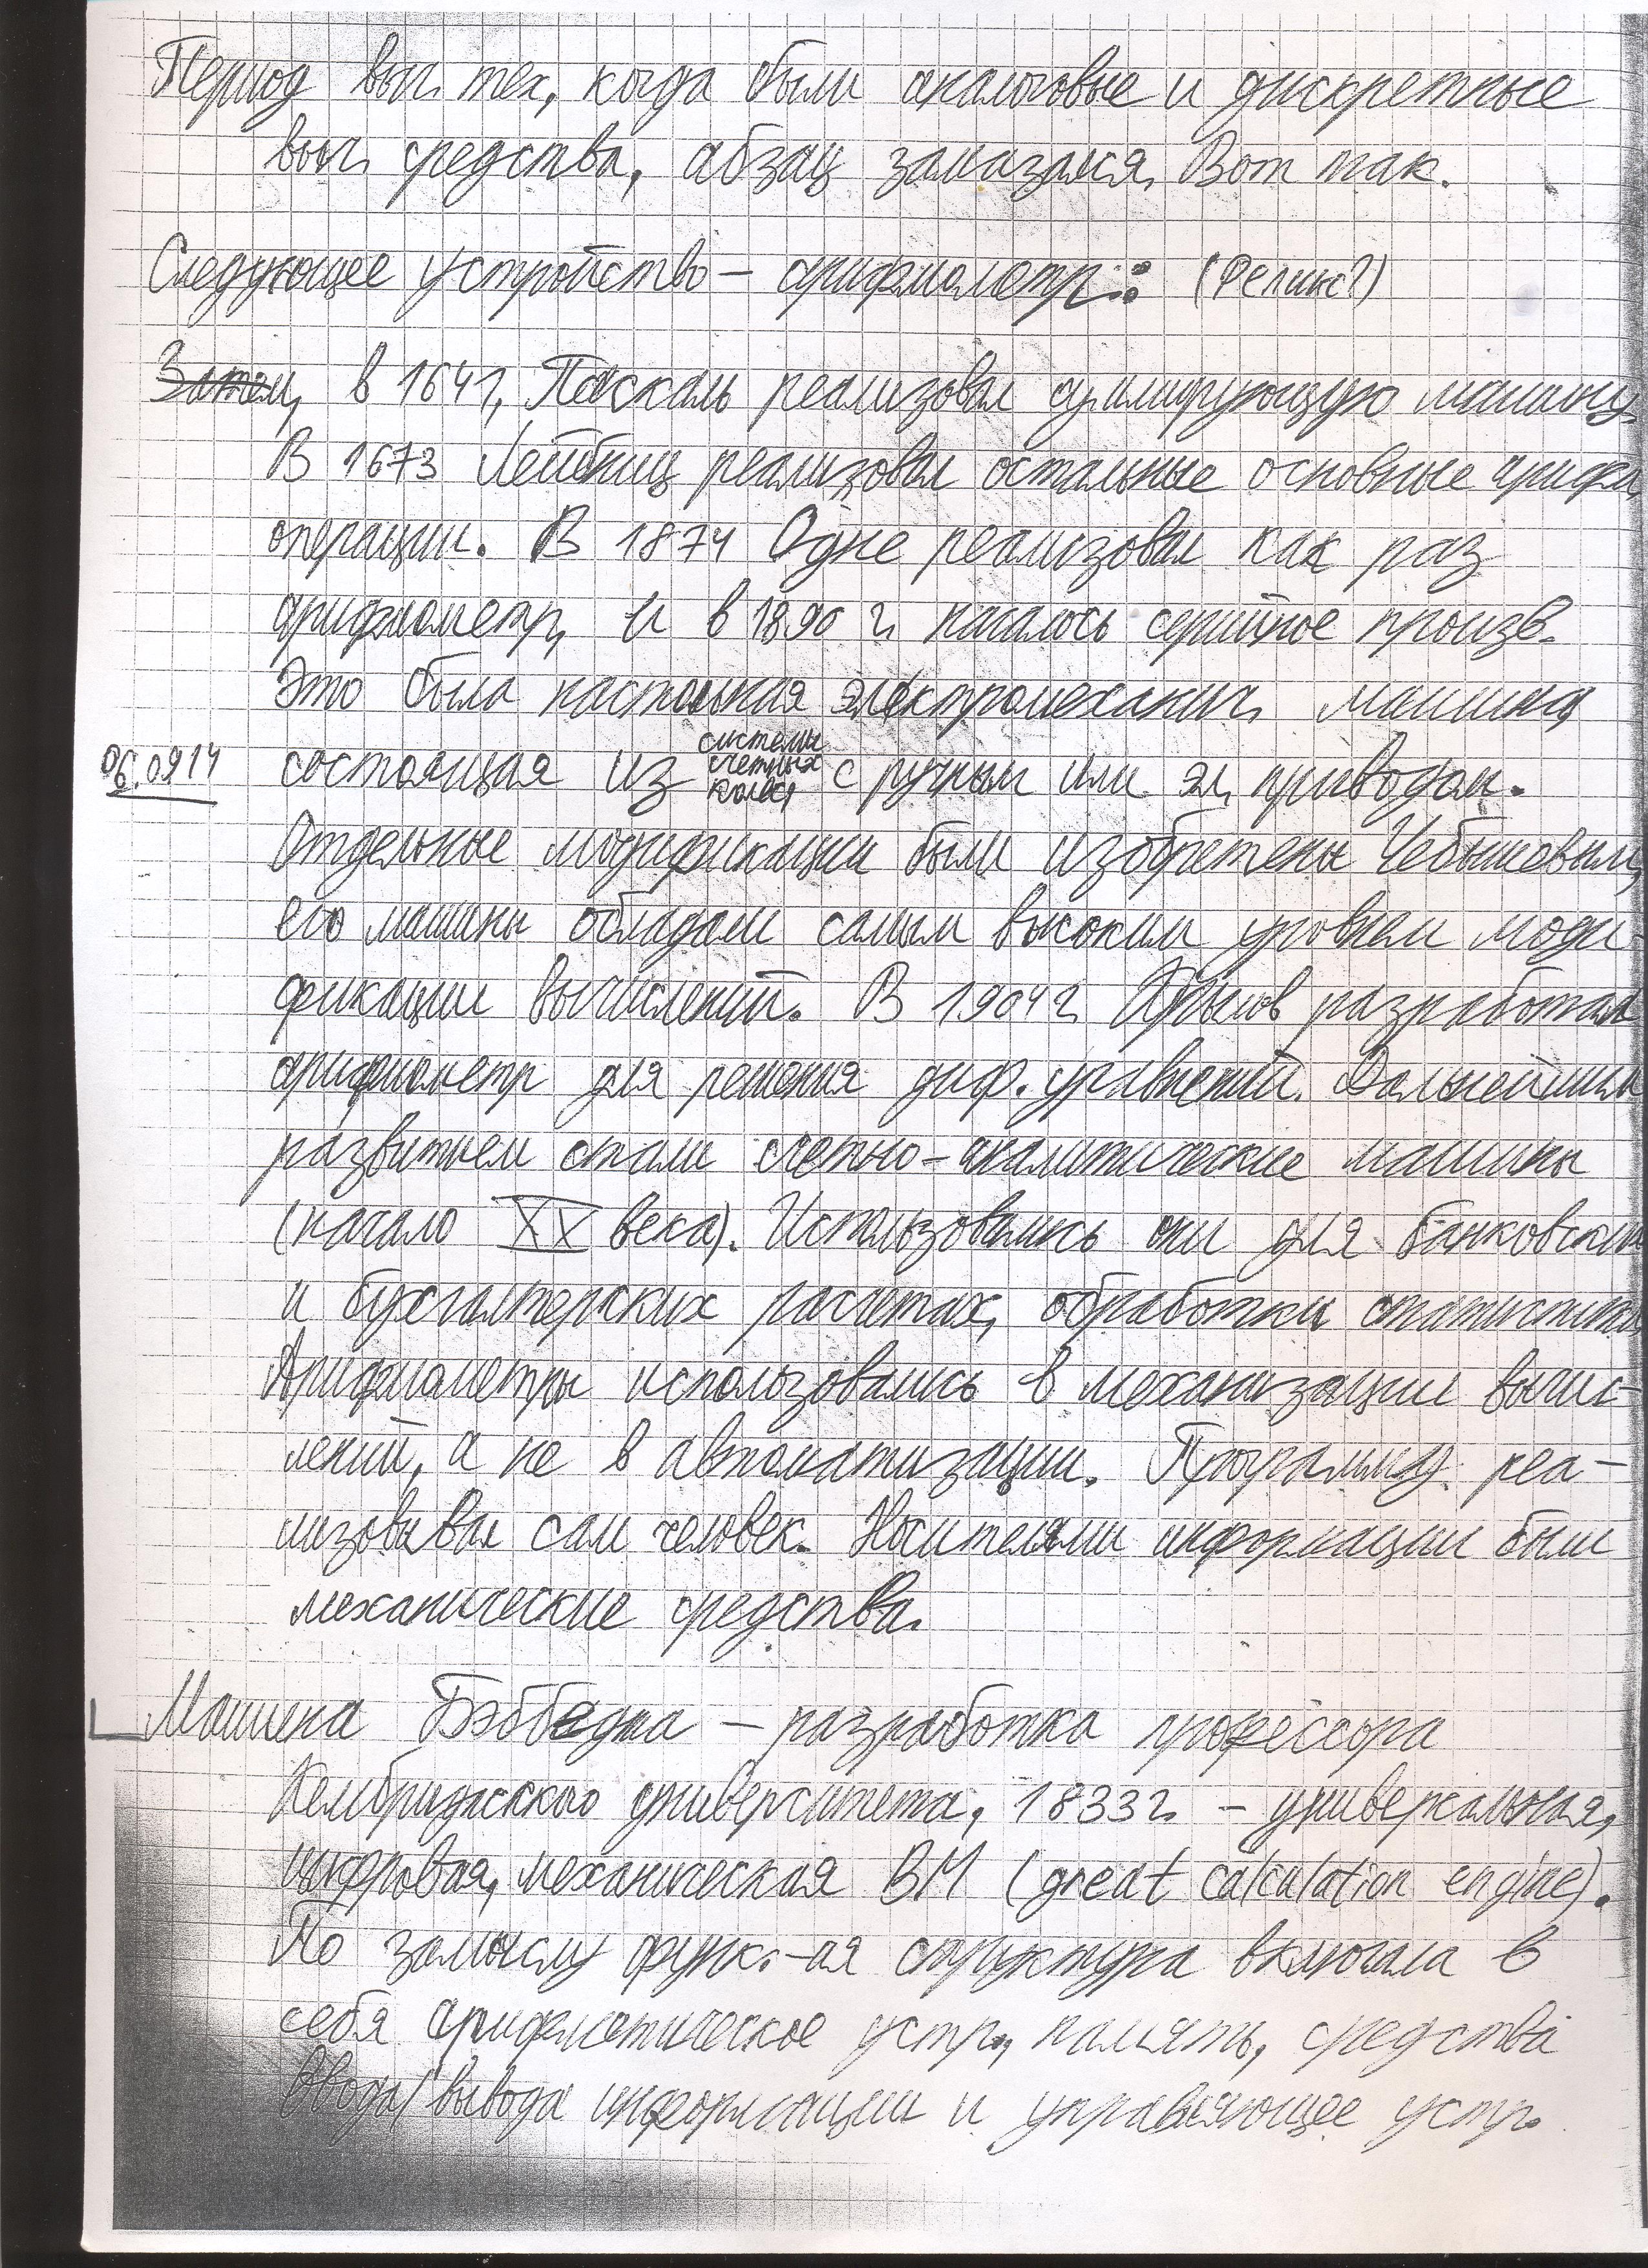 Период выч. тех, когда были аналоговые и дискретные
выч. средства, абзац заказался. Вот так.
Следующее устройство – арифмометр: (Феликс?)
Затем, в 1641, Паскаль реализовал суммирующую машину.
В 1673 Лейбниц реализовал остальные основные арифм.
операции. В 1874 Однер реализовал как раз
арифмометр, и в 1890 г. началось серийное произв.
Это была настольная электромеханич. машина,
06.09.14 состоящая из системы счетных колёс, с ручным или эл. приводом.
Отдельные модификации были изобретены Чебышевым,
его машины обладали самым высоким уровнем моди-
фикации вычислений. В 1904 г. Крылов разработал
арифмометр для решения диф. уравнений. Дальнейшим
развитием стали счетно-аналитические машины
(начало XX века). Использовались они для банковских
и бухгалтерских расчетах, обработки статистики.
Арифмометры использовались в механизации вычис-
лений, а не в автоматизации. Программу реа-
лизовывал сам человек. Носителями информации были
механические средства.
Машина Бэббеджа – разработка профессора
Кембриджского университета, 1833 г. – универсальная,
цифровая, механическая ВМ (great calculation engine).
По замыслу функ.-ая структура включала в
себя арифметическое устр., память, средства
ввода/вывода информации и управляющее устр.